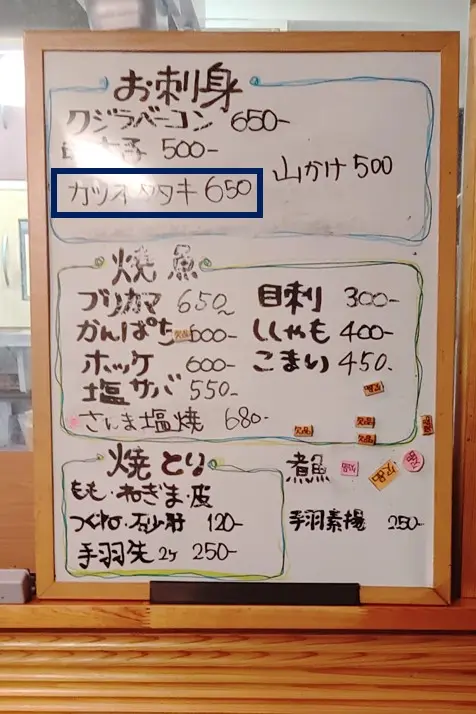 お刺身
クジラベーコン 650-
子 500-
山かけ 500
カツオタタキ 650
焼魚
ブリカマ 650
かんぱち 600-
ホッケ 600-
塩サバ 550-
さんま塩焼 680-
目刺 300-
ししゃも 400-
こまい 450-
欠品
焼とり
もも・ねぎま・皮
つくね・砂肝 120-
手羽先 2ケ 250-
煮魚
欠品
手羽素揚 250-